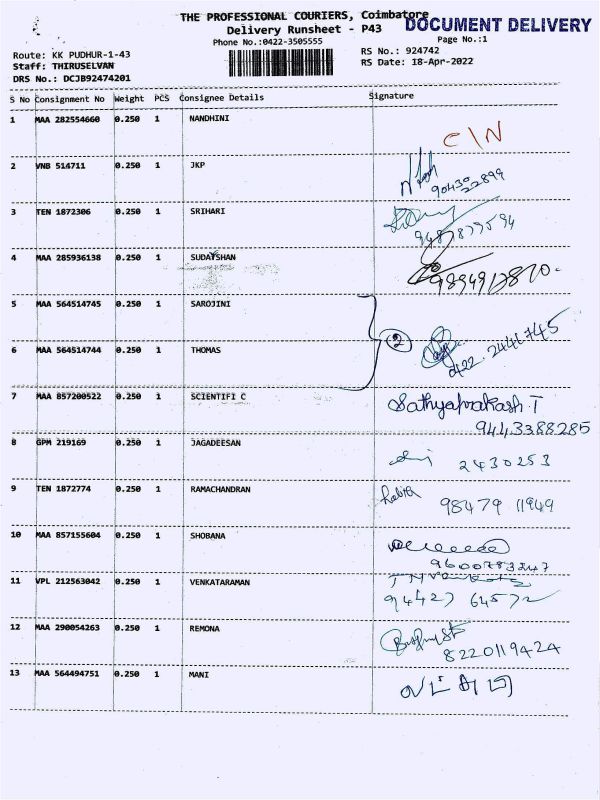 THE PROFESSIONAL COURIERS, Coimbatore
DOCUMENT DELIVERY
Delivery Runsheet - P43
Phone No.:0422-3505555
Page No.:1
Route: KK PUDHUR-1-43
RS No.: 924742
Staff: THIRUSELVAN
RS Date: 18-Apr-2022
DRS No.: DCJB92474201
S No Consignment No Weight PCS Consignee Details Signature
1 MAA 282554660 0.250 1 NANDHINI
C\N
2 VNB 514711 0.250 1 JKP
3 TEN 1872306 0.250 1 SRIHARI
4 MAA 285936138 0.250 1 SUDATSHAN
5 MAA 564514745 0.250 1 SAROJINI
2
0422. 2441745
6 MAA 564514744 0.250 1 THOMAS
7 MAA 857200522 0.250 1 SCIENTIFI C
Sathyaprakash T
9443388285
8 GPM 219169 0.250 1 JAGADEESAN
2430253
9 TEN 1872774 0.250 1 RAMACHANDRAN
98479 11949
10 MAA 857155604 0.250 1 SHOBANA
9600783247
11 VPL 212563042 0.250 1 VENKATARAMAN
94427 64572
12 MAA 290054263 0.250 1 REMONA
8220119424
13 MAA 564494751 0.250 1 MANI